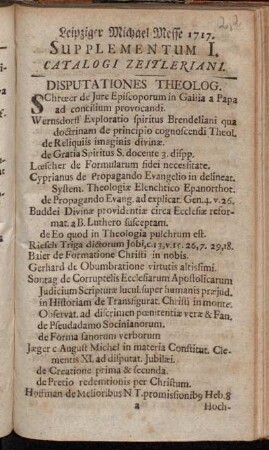 Leipziger Michael Messe 1717.
SUPPLEMENTUM I.
CATALOGI ZEITLERIANI.
DISPUTATIONES THEOLOG.
SChrœer de Jure Episcoporum in Gallia a Papa
ad concilium provocandi.
Wernsdorff Exploratio spiritus Brendeliani qua
doctrinam de principio cognoscendi Theol.
de Reliquiis imaginis divinæ.
de Gratia Spiritus S. docente 3. disp.
Lœscher de Formularum fidei necessitate.
Cyprianus de Propagando Evangelio in delineat.
System. Theologiæ Elenchtico Epanorthot.
de Propagando Evang. ad explicat. Gen. 4. v. 26.
Buddei Divinæ providentiæ circa Ecclesiæ refor-
mat. a B. Luthero susceptam.
de Eo quod in Theologia pulchrum est.
Riesch Triga dictorum Jobi, c. 13, v. 15. 26, 7. 29, 18.
Baier de Formatione Christi in nobis.
Gerhard de Obumbratione virtutis altissimi.
Sontag de Corruptelis Ecclesiarum Apostolicarum
Judicium Scripturæ luculi super humanis præjud.
in Historiam de Transfigurat. Christi in monte.
Observat. ad discrimen pœnitentiæ veræ & falsæ.
de Pseudadamo Socinianorum.
de Forma sanorum verborum
Jæger e August Michel in materia Constitut. Cle-
mentis XI. ad disputat. Jubilæi.
de Creatione prima & secunda.
de Pretio redemtionis per Christum.
Hoffman de Melioribus N.T. promissionib9 Heb. 8
a Hoch-